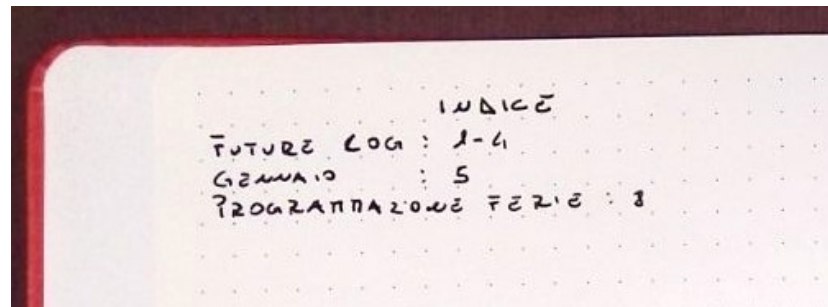 INDICE
FUTURE LOG : 1-4
GENNAIO : 5
PROGRAMMAZIONE FERIE : 8